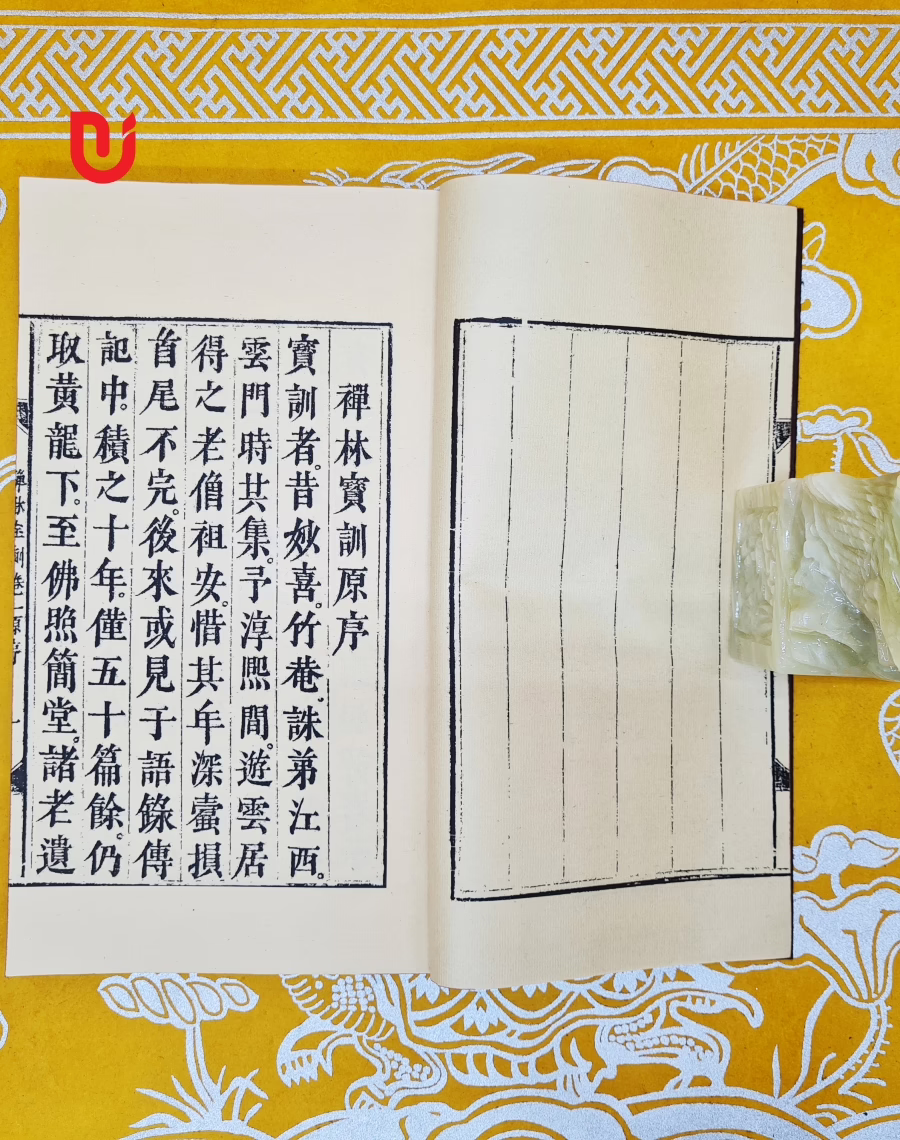 禪林寳訓原序
寳訓者。昔妙喜。竹菴。誅茅江西。
雲門時共集。予淳熙間。遊雲居
得之老僧祖安。惜其年深蠹損
首尾不完。後來或見于語錄傳
記中。積之十年。僅五十篇餘。仍
取黃龍下。至佛照簡堂。諸老遺
禪林寳訓卷一原序
一